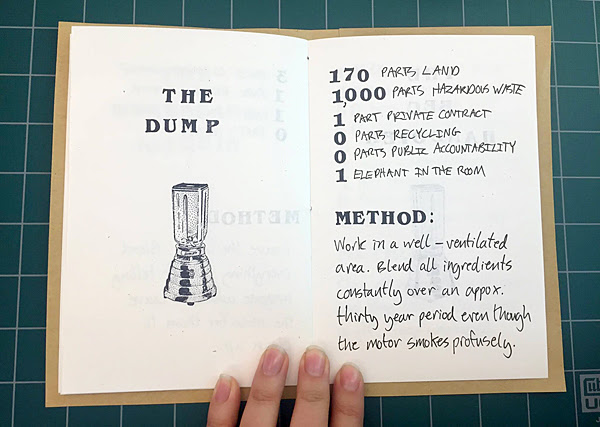 THE
DUMP
170 PARTS LAND
1,000 PARTS HAZARDOUS WASTE
1 PART PRIVATE CONTRACT
0 PARTS RECYCLING
0 PARTS PUBLIC ACCOUNTABILITY
1 ELEPHANT IN THE ROOM
METHOD:
Work in a well-ventilated
area. Blend all ingredients
constantly over an appox.
thirty year period even though
the motor smokes profusely.